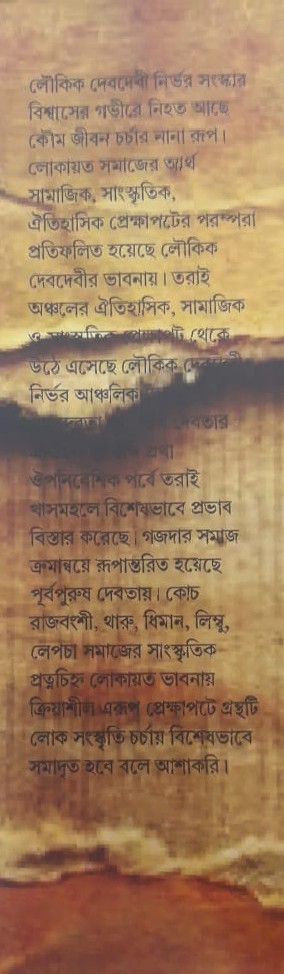 লৌকিক দেবদেবী নির্ভর সংস্কার
বিশ্বাসের গভীরে নিহত আছে
কৌম জীবন চর্চার নানা রূপ।
লোকায়ত সমাজের আর্থ
সামাজিক, সাংস্কৃতিক,
ঐতিহাসিক প্রেক্ষাপটের পরম্পরা
প্রতিফলিত হয়েছে লৌকিক
দেবদেবীর ভাবনায়। তরাই
অঞ্চলের ঐতিহাসিক, সামাজিক
ও সাংস্কৃতিক প্রেক্ষাপট থেকে
উঠে এসেছে লৌকিক দেবদেবী
নির্ভর আঞ্চলিক
দেবতার
প্রথা
ঔপনিবেশিক পর্বে তরাই
খাসমহলে বিশেষভাবে প্রভাব
বিস্তার করেছে। গজদার সমাজ
ক্রমান্বয়ে রূপান্তরিত হয়েছে
পূর্বপুরুষ দেবতায়। কোচ
রাজবংশী, থারু, ধিমান, লিম্বু,
লেপচা সমাজের সাংস্কৃতিক
প্রত্নচিহ্ন লোকায়ত ভাবনায়
ক্রিয়াশীল এরূপ প্রেক্ষাপটে গ্রন্থটি
লোক সংস্কৃতি চর্চায় বিশেষভাবে
সমাদৃত হবে বলে আশাকরি।